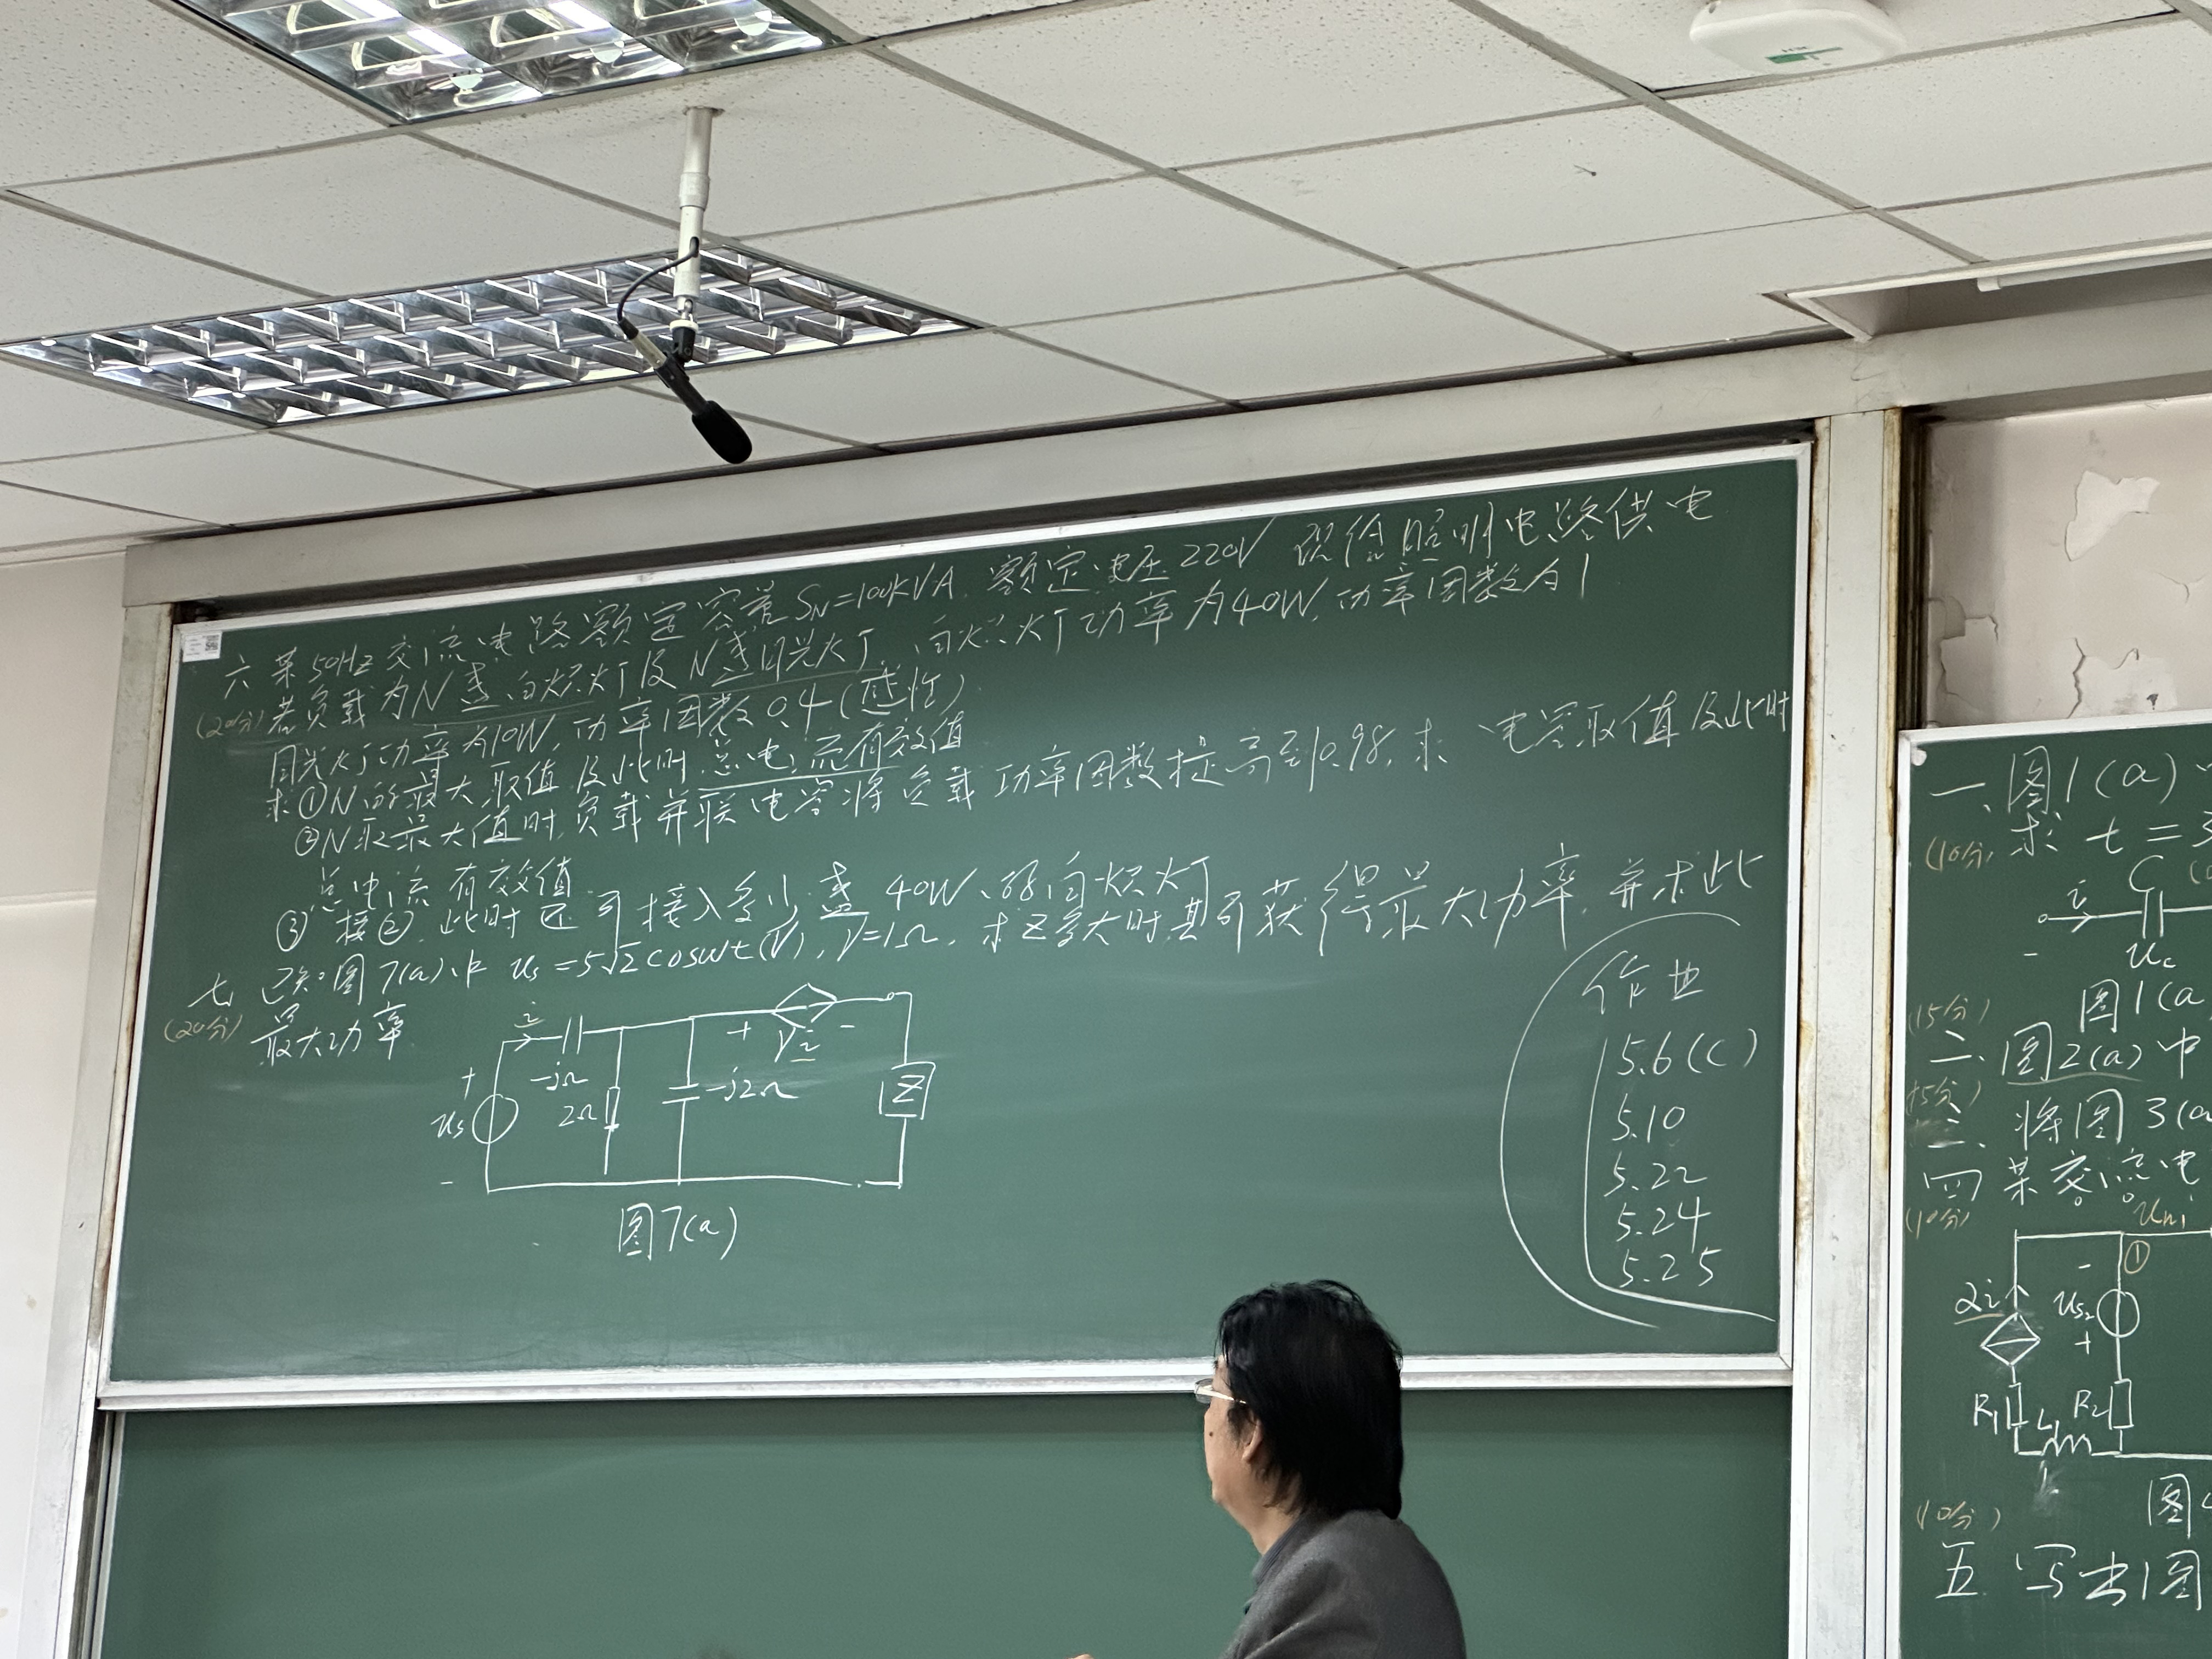 六 某50HZ交流电路额定容量SN=100KVA. 额定电压220V 现给照明电路供电
(20分) 若负载为N盏白炽灯及N盏日光灯, 白炽灯功率为40W, 功率因数为1
日光灯功率为10W, 功率因数0.4(感性)
求①N的最大取值及此时总电流有效值
②N取最大值时,负载并联电容将负载功率因数提高到0.98, 求 电容取值及此时
总电流有效值
③ 接②, 此时还可接入多少盏40W的白炽灯
七 已知图7(a)中 us=5√2coswt(V), γ=1Ω, 求Z多大时其可获得最大功率, 并求此
(20分) 最大功率
+
us
-
i
-jΩ
2Ω
-j2Ω
+ γi -
Z
图7(a)
作业
5.6(C)
5.10
5.22
5.24
5.25
一、图1(a)
(10分) 求 t=3
C
i
-
uc
图1(a
(15分)
二、图2(a)中
(15分)
三、将图3(a
四 某交流电
(10分)
un1
①
-
us2
+
2i
R1
L1
R2
图4
(10分)
五. 写出图